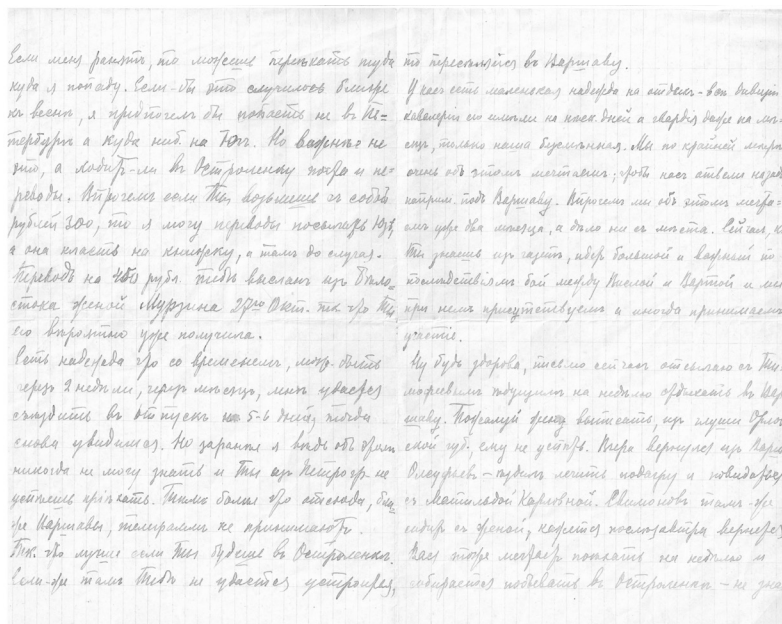 Если меня ранятъ, то можешь пріѣхать туда
куда я попаду. Если-бы это случилось ближе
къ веснѣ, я предпочелъ бы попасть не въ Пе-
тербургъ а куда ниб. на Югъ. Но важнѣе не
это, а ходитъ-ли въ Остроленку почта и пе-
реводы. Впрочемъ если Ты возьмешь съ собой
рублей 300, то я могу переводы посылать
а она класть на книжку, а тамъ до случая.
Переводъ на 450 рубл. тебѣ высланъ изъ Бѣло-
стока женой Мурзина 27го Окт. т.ч. что Ты
его вѣроятно уже получила.
Есть надежда что со временемъ, мож. быть
черезъ 2 недѣли, черезъ мѣсяцъ, мнѣ удастся
съѣздить въ отпускъ на 5-6 дней, тогда
снова увидимся. Но заранѣе я вѣдь объ этомъ
никогда не могу знать и Ты изъ Петрогр. не
успѣешь пріѣхать. Тѣмъ болѣе что отсюда, бли-
же Варшавы, телеграммъ не принимаютъ.
Т.ч. что лучше если Ты будешь въ Остроленкѣ.
Если-же тамъ Тебѣ не удастся устроиться,
то переселяйся въ Варшаву.
У насъ есть маленькая надежда на отдыхъ - вон дивизіи
кавалеріи его имѣли на нѣск. дней а гвардія даже на мѣ-
сяцъ, только наша безсмѣнная. Мы по крайней мѣрѣ
очень объ этомъ мечтаемъ; чтобы насъ отвели назадъ
наприм. подъ Варшаву. Впрочемъ мы объ этомъ мечта-
емъ уже два мѣсяца, а дѣло ни съ мѣста. Сейчас,
Ты знаешь изъ газетъ, идетъ большой и важный по
послѣдствіямъ бой между Вислой и Вартой и мы
при немъ присутствуемъ и иногда принимаемъ
участіе.
Ну будь здорова, письмо сейчасъ отсылаю съ Ти-
мофѣевымъ ѣдущимъ на недѣлю отдыхать въ Вар-
шаву. Пожалуй жену выписать, изъ глуши Орлов-
ской губ. ему не успѣть. Вчера вернулся изъ Варш
Олсуфьевъ - ѣздилъ лечить подагру и повидаться
съ Матильдой Карловной. Свимоновъ тамъ-же
сидитъ съ женой, кажется послѣзавтра вернется
Вася тоже мечтаетъ поѣхать на недѣлю и
собирается побывать въ Остроленкѣ - не